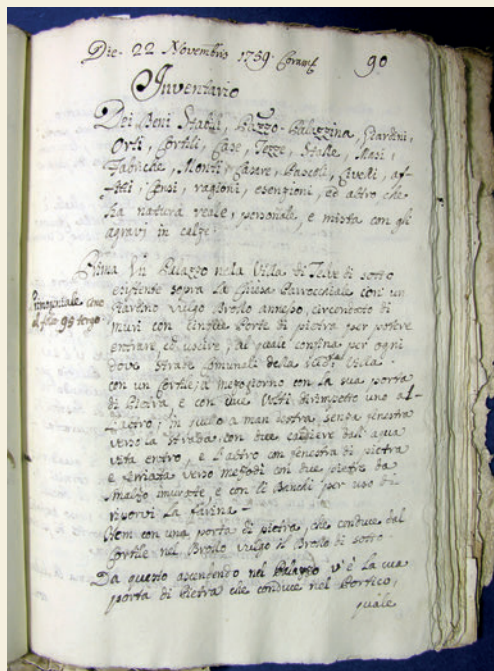 Die. 22 Novembrio 1759. Coram
90
Inventario
Dei Beni Stabili, Palazzo. Palazzina, Giardini,
Orti, Cortili, Case, Tezze, Stalle, Masi,
Fabriche, Monti, Casare, Pascoli, Livelli, af-
fitti, Censi, ragioni, esenzioni, ed altro che
ha natura reale, personale, e mista con gli
agravi in calze.
Prima Un Palazzo nela Villa di Telve di sotto
esistente sopra la Chiesa Parrocchiale con un
Giardino vulgo Brollo annesso, circondato di
muri con cinque Porte di pietra per potere
entrare ed uscire, al quale confina per ogni
dove strade Comunali della Villa
con un Cortile a mezogiorno con la sua porta
di Pietra e con due Volti dirimpetto uno al-
l'altro; in quello a man destra senza fenestra
verso la strada con due caldiere dall'aqua
vita entro, e l'altro con fenestra di pietra
e ferriata verso mezodi con due pietre da
smalzo murate e con li Banchi per uso di
riporvi la farina -
Item con una porta di pietra, che conduce dal
Cortile nel Brollo vulgo il Brollo di sotto
Da questo ascendendo nel Palazzo v'è la sua
porta di Pietra che conduce nel Portico,
quale
Primogeniale come
al folio 99 tergo